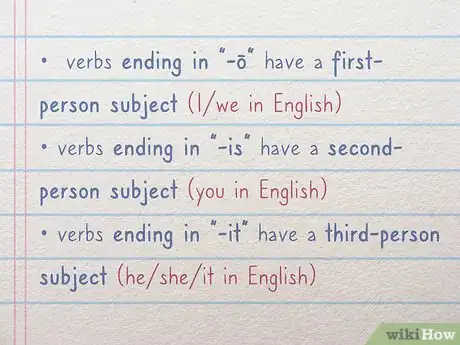 • verbs ending in "-ō" have a first-
person subject (I/we in English)
• verbs ending in "-is" have a second-
person subject (you in English)
• verbs ending in "-it" have a third-person
subject (he/she/it in English)
wikiHow